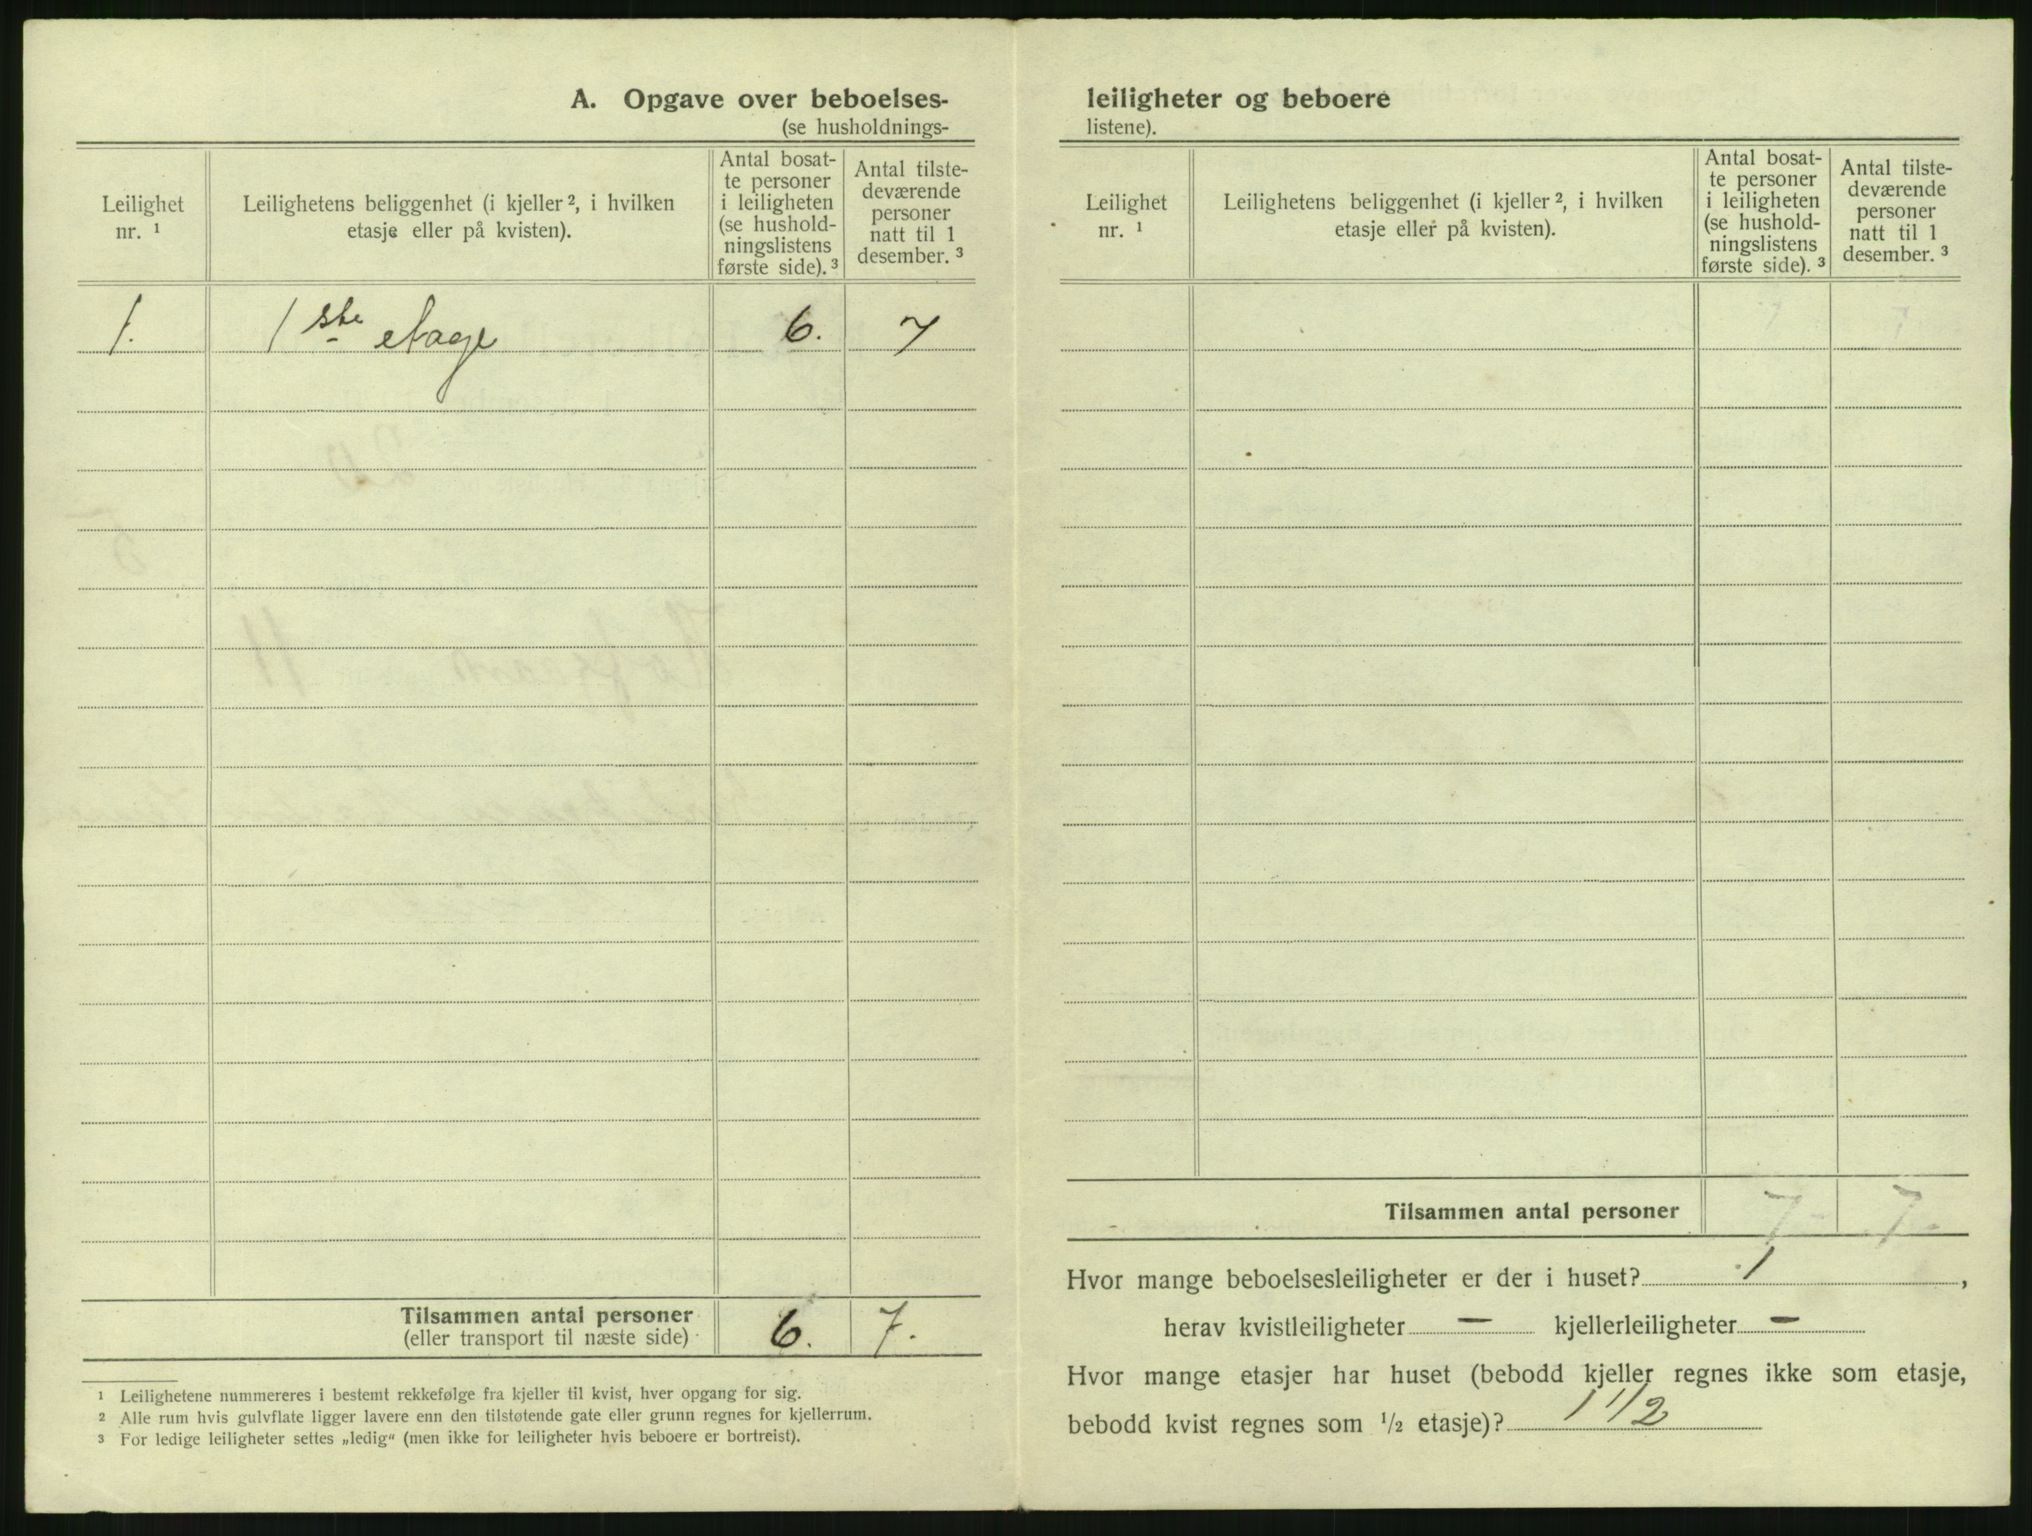 A. Opgave over beboelses-
(se husholdnings-
Leilighet nr. ¹
Leilighetens beliggenhet (i kjeller ², i hvilken
etasje eller på kvisten).
Antal bosat-
te personer
i leiligheten
(se hushold-
ningslistens
første side). ³
Antal tilste-
deværende
personer
natt til 1
desember. ³
1. 1ste etage 6. 7
Tilsammen antal personer
(eller transport til næste side) 6. 7.
¹ Leilighetene nummereres i bestemt rekkefølge fra kjeller til kvist, hver opgang for sig.
² Alle rum hvis gulvflate ligger lavere enn den tilstøtende gate eller grunn regnes for kjellerrum.
³ For ledige leiligheter settes „ledig“ (men ikke for leiligheter hvis beboere er bortreist).
leiligheter og beboere
listene).
Leilighet
nr. ¹
Leilighetens beliggenhet (i kjeller ², i hvilken
etasje eller på kvisten).
Antal bosat-
te personer
i leiligheten
(se hushold-
ningslistens
første side). ³
Antal tilste-
deværende
personer
natt til 1
desember. ³
7 7
Tilsammen antal personer 7. 7.
Hvor mange beboelsesleiligheter er der i huset? 1,
herav kvistleiligheter — kjellerleiligheter —
Hvor mange etasjer har huset (bebodd kjeller regnes ikke som etasje,
bebodd kvist regnes som 1/2 etasje)? 1 1/2